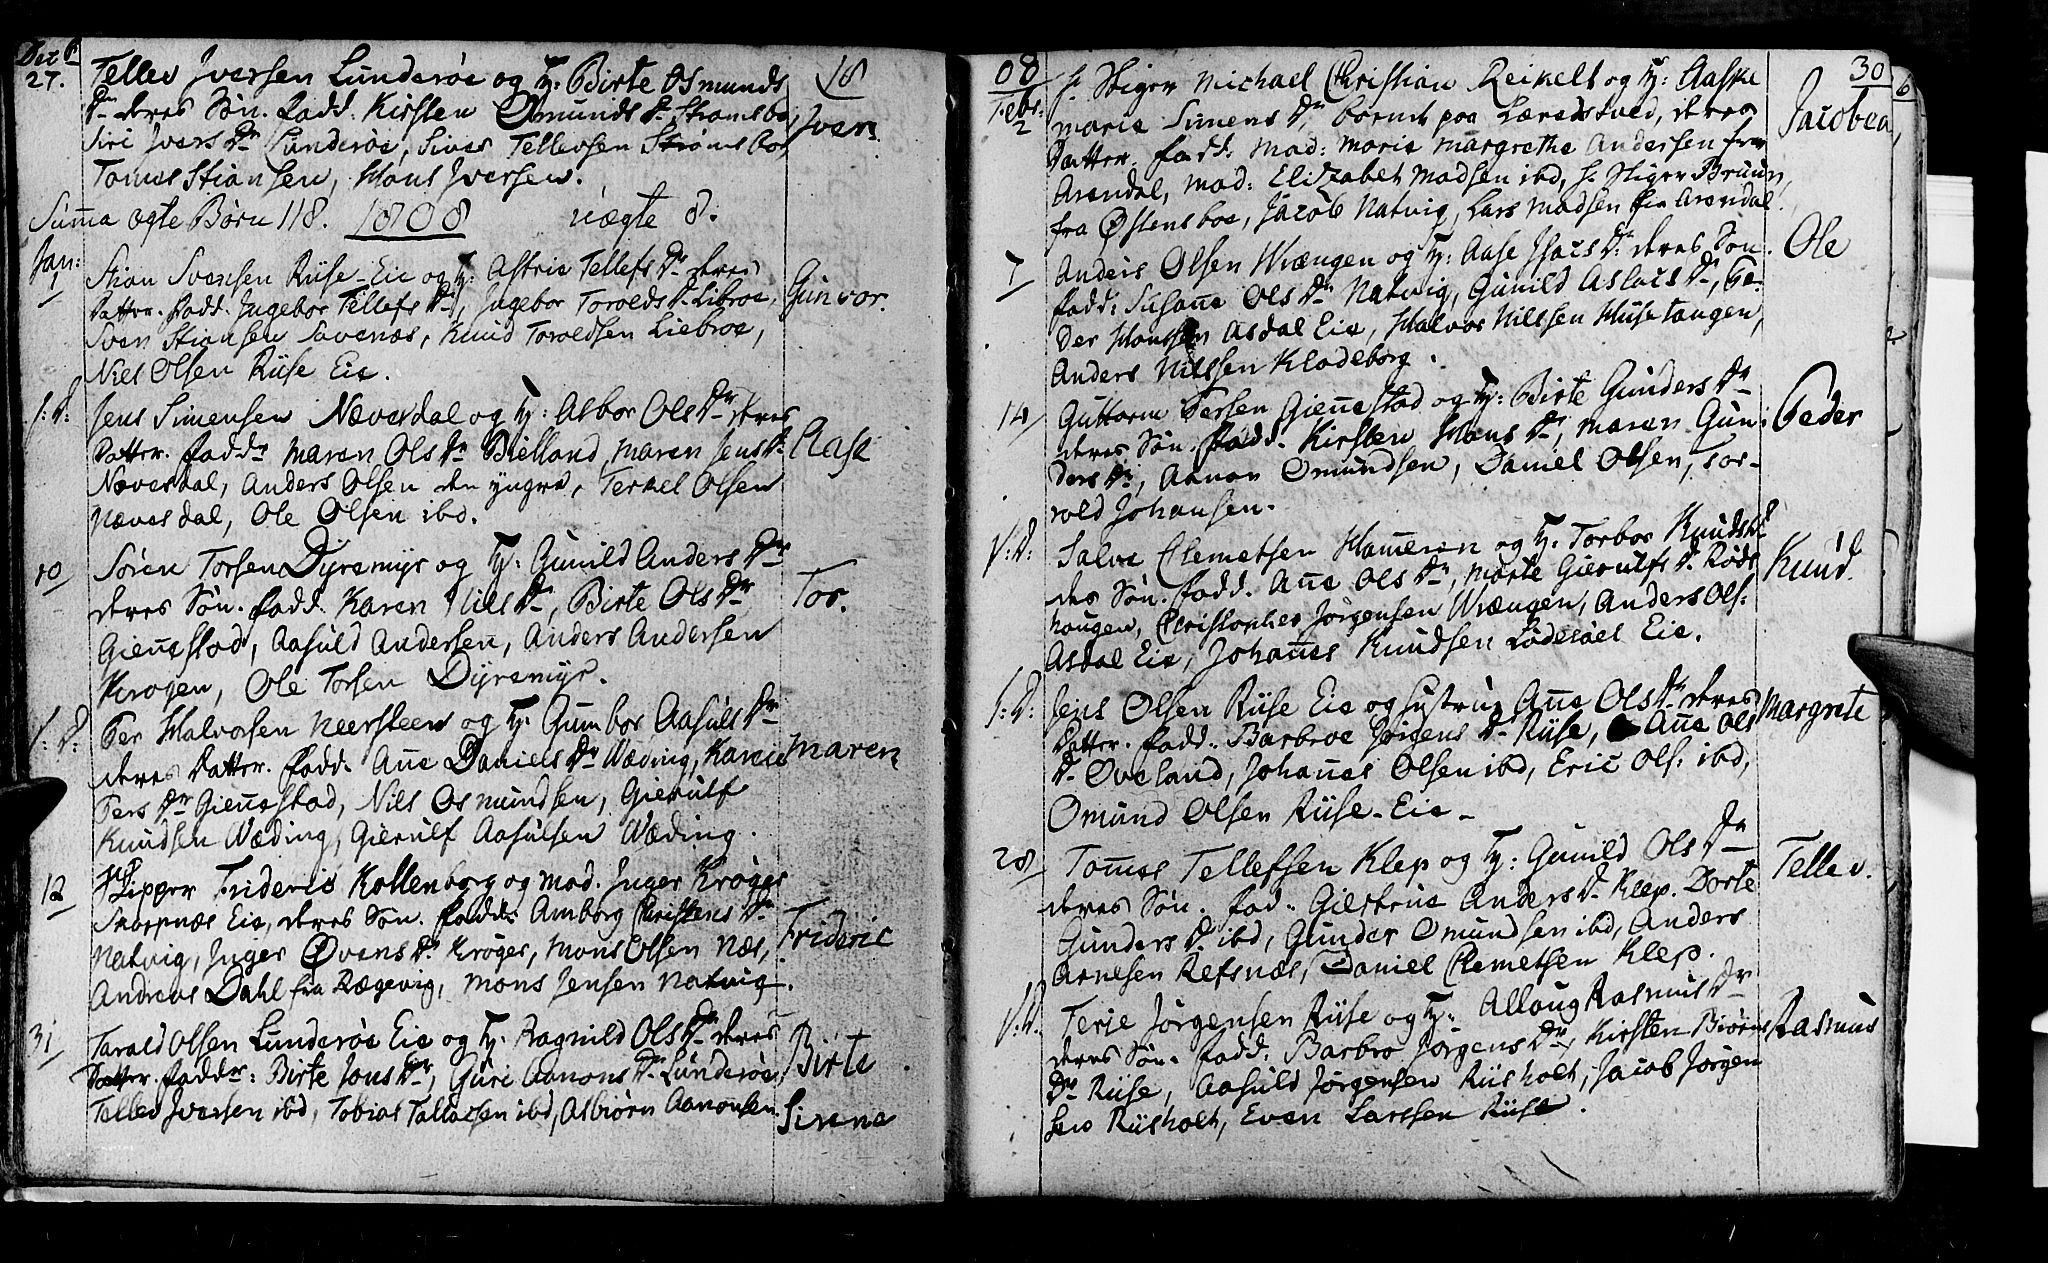 Dec b
27.
Tellev Iversen Lunderøe og Hu: Birte Osmunds
Dr deres Søn. Fadd: Kirsten Omunds Dr Strømsboe,
Siri Ivers Dr Lunderøe, Sives Tellevsen Strømsboe,
Tomes Stiansen, Hans Iversen.
Iver.
18
Summa ægte Børn 118. 1808 uægte 8.
Jan:
1
Stian Svensen Riise Eie og Hu: Astrie Tellefs Dr deres
Datter. Fadd. Ingebor Tellefs Dr, Ingebor Torolds Dr Libroe,
Sven Stiansen Savenæs, Knud Toroldsen Liebroe,
Niels Olsen Riise Eie.
Gunvor.
S: D:
Jens Simensen Nævesdal og Hu: Asbor Ols Dr deres
Datter. Fadd: Maren Ols Dr Bielland, Maren Jens Dr
Nævesdal, Anders Olsen den yngre, Terkel Olsen
Nævesdal, Ole Olsen ibd.
Aase
10
Søren Torsen Dyremyr og Hu: Gunild Anders Dr
deres Søn. Fadd. Karen Niels Dr, Birte Ols Dr
Giennestad, Aasuld Andersen, Anders Andersen
Krogen, Ole Torsen Dyremyr.
Tor.
S: D:
Per Halvorsen Neersteen og Hu: Gumbor Aasuls Dr
deres Datter. Fadd. Anne Daniels Dr Wæding, Karen
Pers Dr Giennestad, Nils Osmundsen, Gierulf
Knudsen Wæding, Gierulf Aasulsen Wæding.
Maren
12
Skipper Frideric Kollenborg og Mad. Inger Krøger
Skarpnæs Eie, deres Søn. Fadd: Amborg Christens Dr
Natvig, Inger Øvens Dr Krøger, Mons Olsen Næs,
Andreas Dahl fra Rægevig, Mons Jensen Natvig.
Frideric
31
Tarald Olsen Lunderøe Eie og Hu: Ragnild Ols Dr deres
Datter. Fadd: Birte Jons Dr, Guri Aanons Dr Lunderøe,
Tellev Iversen ibd, Tobias Tallacsen ibd, Asbiørn Aanonsen.
Birte
Sirene
08
30
Febr:
2
Hr Stiger Michael Christian Reikelt og Hu: Aaske
Marie Simens Dr, boende paa Læredsved, deres
Datter. Fadd: Mad: Marie Margrethe Andersen fra
Arendal, Mad: Elizabet Madsen ibd, Hr Stiger Bruun
fra Østensboe, Jacob Natvig, Lars Madsen fra Arendal.
Jacobea
7
Anders Olsen Wrængen og Hu: Aase Isacs Dr deres Søn.
Fadd: Susanne Ols Dr Natvig, Gunild Aslacs Dr, Pe-
der Hansen Asdal Eie, Halvor Nilssen Husetangen,
Anders Nilssen Kladeborg.
Ole
14
Guttorm Persen Giennestad og Hu: Birte Gunders Dr
deres Søn. Fadd. Kirsten Hans Dr, Maren Gun-
ders Dr, Aanon Omundsen, Daniel Olsen, Tor-
vold Johansen.
Peder
S: D:
Salve Clemetsen Hammeren og Hu: Torbor Knuds Dr
des Søn. Fadd. Anne Ols Dr, Marte Gierulfs Dr Røds
hougen, Christopher Jørgensen Wrængen, Anders Ols:
Asdal Eie, Johannes Knudsen Løddesøel Eie.
Knud.
S: D:
Jens Olsen Riise Eie og Hustrue Anne Ols Dr deres
Datter. Fadd. Barbroe Jørgens Dr Riise, Anne Ols
Dr Øveland, Johannes Olsen ibd, Eric Ols: ibd,
Omund Olsen Riise-Eie.
Margrete
28
Tommes Tellefsen Klep og Hu: Gunild Ols Dr
deres Søn. Fad. Giertrue Anders Dr Klep. Dorte
Gunders Dr ibd, Gunder Omundsen ibd, Anders
Arnesen Refsnæs, Daniel Clemetsen Klep.
Tellev.
S: D:
Terje Jørgensen Riise og Hu: Alloug Rasmus Dr
deres Søn. Fadd. Barbro Jørgens Dr, Kirsten Biørns
Dr Riise, Aasuld Jørgensen Riisholt, Jacob Jørgen
sen Riisholt, Even Larssen Riise.
Rasmus